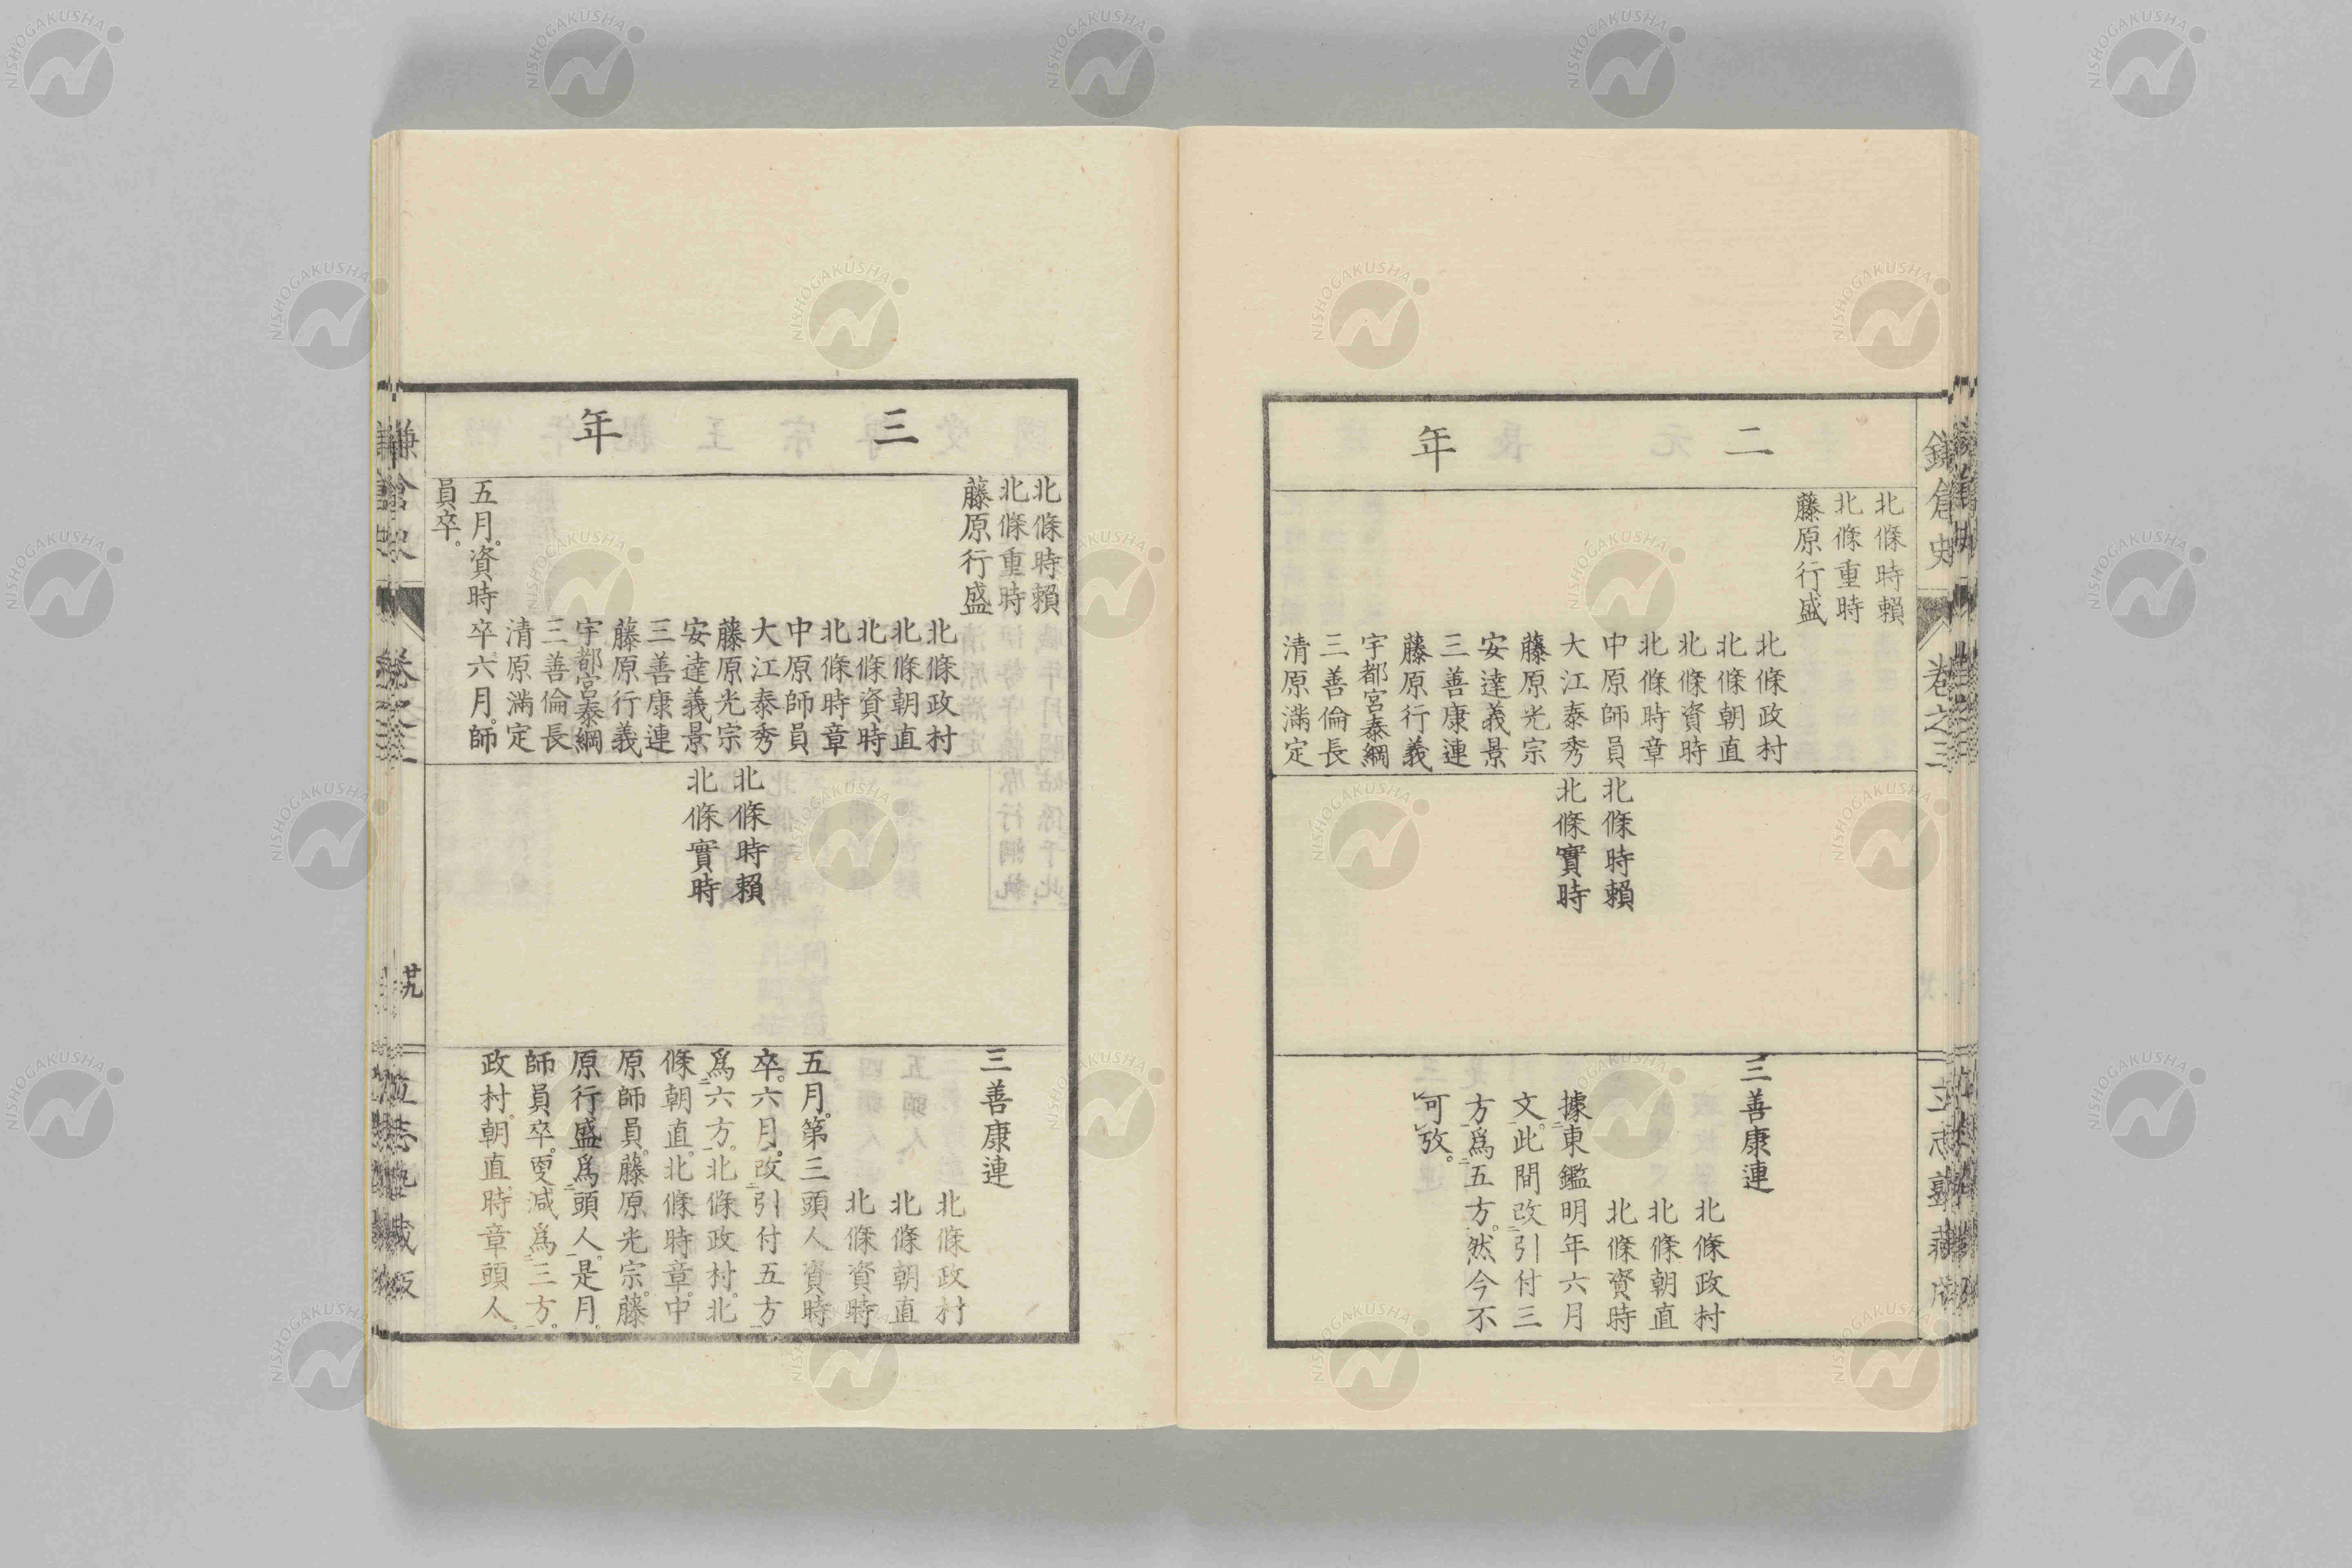 鎌倉史
卷之三
二年
北條時賴
北條重時
藤原行盛
北條政村
北條朝直
北條資時
北條時章
中原師員
大江泰秀
藤原光宗
安達義景
三善康連
藤原行義
宇都宮泰綱
三善倫長
清原滿定
北條時賴
北條實時
三善康連
北條政村
北條朝直
北條資時
據東鑑明年六月
文此間改引付三
方爲五方。然今不
可攷。
三年
北條時賴
北條重時
藤原行盛
北條政村
北條朝直
北條資時
北條時章
中原師員
大江泰秀
藤原光宗
安達義景
三善康連
藤原行義
宇都宮泰綱
三善倫長
清原滿定
五月。資時卒。六月。師
員卒。
北條時賴
北條實時
三善康連
北條政村
北條朝直
北條資時
五月。第三頭人資時
卒。六月。改引付五方
爲六方。北條政村。北
條朝直。北條時章。中
原師員。藤原光宗。藤
原行盛爲頭人。是月。
師員卒。更減爲三方。
政村。朝直。時章頭人。
卷之三
廿九
NISHOGAKUSHA